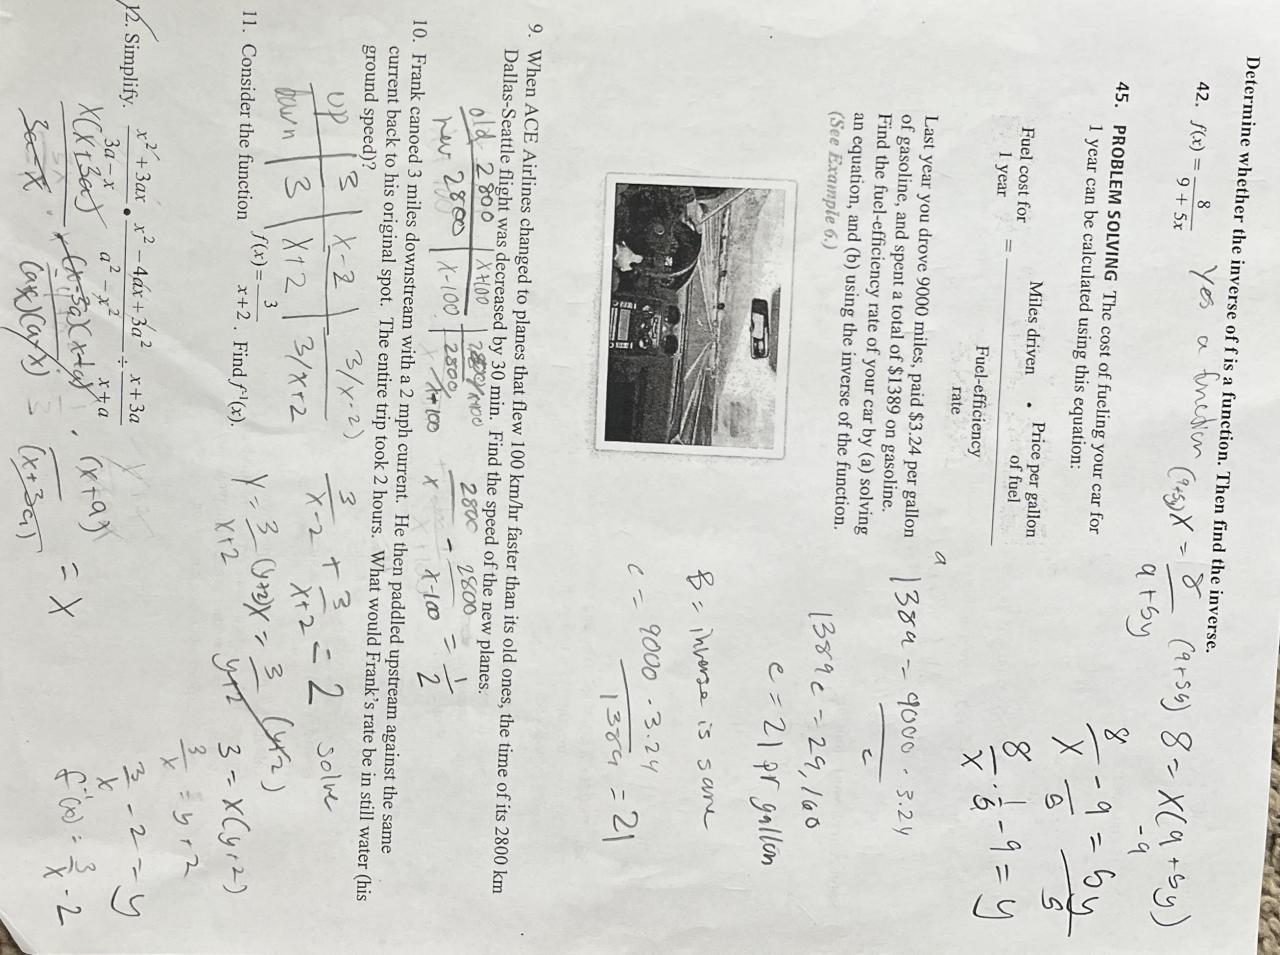 Determine whether the inverse of f is a function. Then find the inverse.
42. f(x) = 8 / 9 + 5x
Yes a function
(9+5y) X = 8 / 9+5y (9+5y)
8 = x(9+5y)
-9
8 / x - 9 = 5y
5 5
8 / x · 1/5 - 9 = y
45. PROBLEM SOLVING The cost of fueling your car for
1 year can be calculated using this equation:
Fuel cost for 1 year = Miles driven • Price per gallon of fuel / Fuel-efficiency rate
Last year you drove 9000 miles, paid $3.24 per gallon
of gasoline, and spent a total of $1389 on gasoline.
Find the fuel-efficiency rate of your car by (a) solving
an equation, and (b) using the inverse of the function.
(See Example 6.)
a
1389 = 9000 · 3.24 / c
1389c = 29,160
c = 21 pr gallon
B = inverse is same
c = 9000 · 3.24 / 1389 = 21
9. When ACE Airlines changed to planes that flew 100 km/hr faster than its old ones, the time of its 2800 km
Dallas-Seattle flight was decreased by 30 min. Find the speed of the new planes.
old 2800 x+100
new 2800 x-100 2800
x+100
2800 / x - 2800 / x-100 = 1/2
10. Frank canoed 3 miles downstream with a 2 mph current. He then paddled upstream against the same
current back to his original spot. The entire trip took 2 hours. What would Frank's rate be in still water (his
ground speed)?
up 3 x-2 3/x-2)
down 3 x+2 3/x+2
3 / x-2 + 3 / x+2 = 2 solve
11. Consider the function f(x) = 3 / x+2 . Find f⁻¹(x).
y = 3 / x+2
(y+2)x = 3 / y+2 (y+2)
3 = x(y+2)
3/x = y+2
3/x - 2 = y
f⁻¹(x) = 3/x - 2
12. Simplify. x² + 3ax / 3a - x • x² - 4ax + 3a² / a² - x² ÷ x + 3a / x + a
x(x+3a) / 3a-x · (x-3a)(x-a) / (a-x)(a+x) · (x+a) / (x+3a) = x